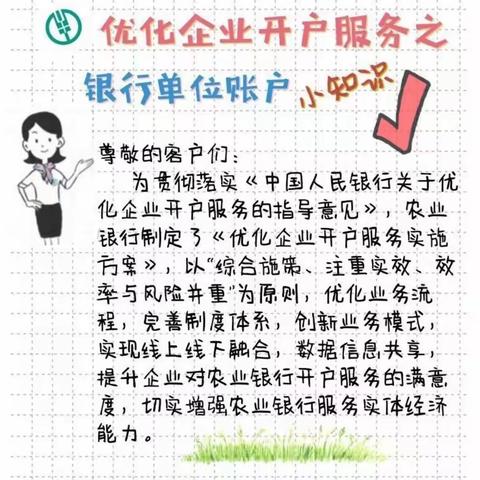 优化企业开户服务之
银行单位账户小知识
尊敬的客户们：
为贯彻落实《中国人民银行关于优
化企业开户服务的指导意见》，农业
银行制定了《优化企业开户服务实施
方案》，以“综合施策、注重实效、效
率与风险并重”为原则，优化业务流
程，完善制度体系，创新业务模式，
实现线上线下融合，数据信息共享，
提升企业对农业银行开户服务的满意
度，切实增强农业银行服务实体经济
能力。